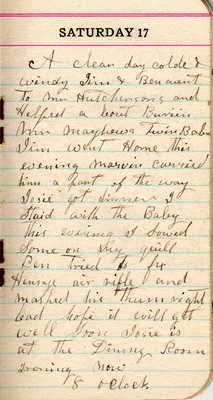 SATURDAY 17
A clean day colde &
windy Jim & Ben went
to Mr Hutchinsons and
Helped a bout Buriin
Mrs Mayhews Twin Babe
Jim went Home this
evening Marvin carried
him a part of the way
Josie got dinner I
Staid with the Baby
this evening I Sowed
Some on my quill
Ben tried to fix
Henrys air rifle and
mashed his thum right
bad hope it will get
well Soon Josie is
at the Dining Room
Ironing now
8 oclock